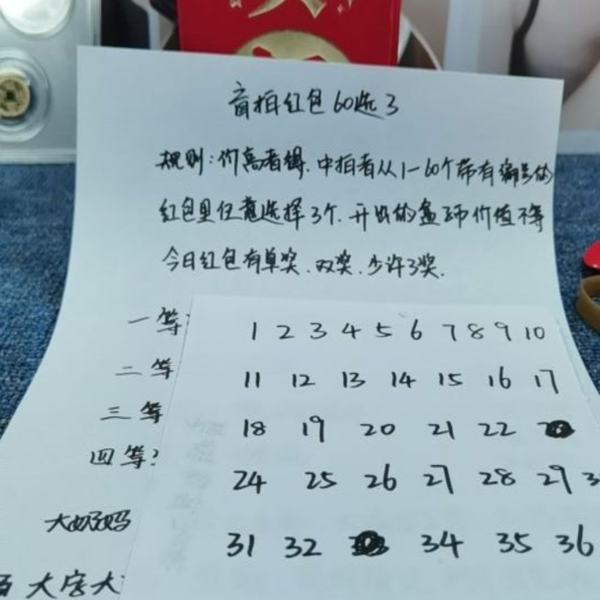 盲拍红包60选3
规则:价高者得.中拍者从1-60个带有编号的
红包里任意选择3个.开出的盒币价值不等
今日红包有单奖.双奖.少许3奖.
一等
二等
三等
四等
大奶妈
大字大
1 2 3 4 5 6 7 8 9 10
11 12 13 14 15 16 17
18 19 20 21 22
24 25 26 27 28 29
31 32 34 35 36